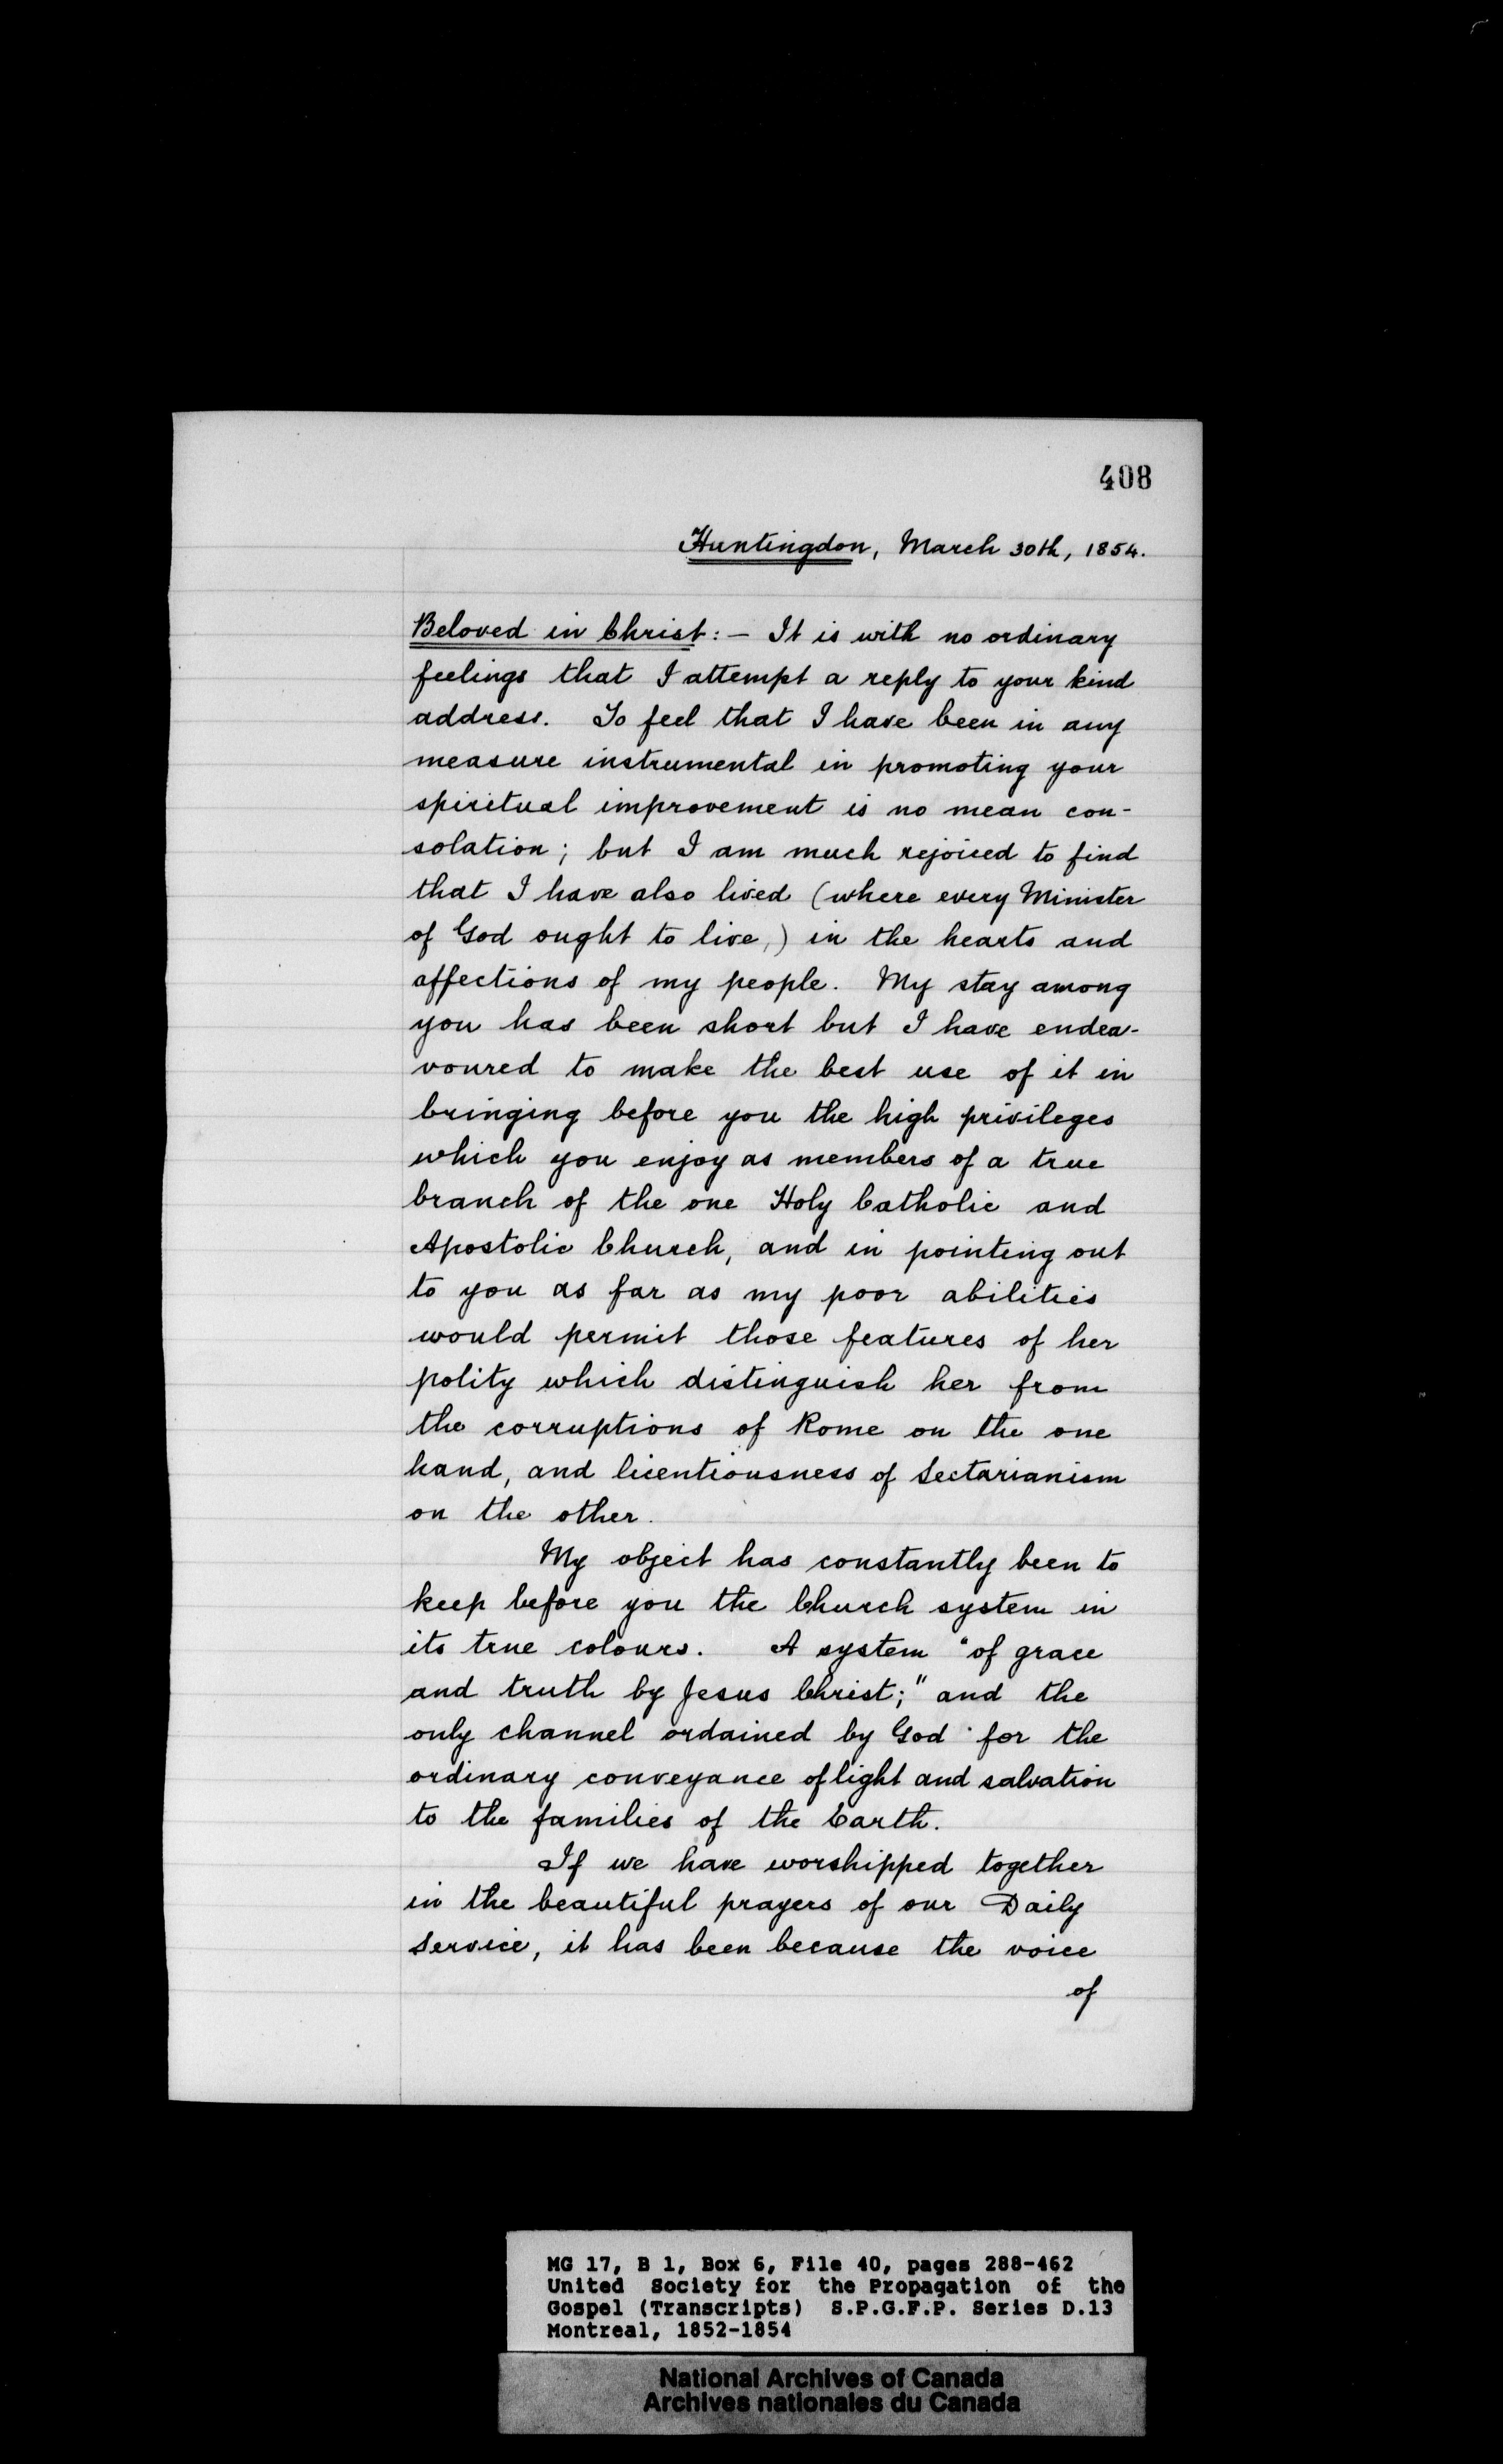 408
Huntingdon, March 30th, 1854.
Beloved in Christ: — It is with no ordinary
feelings that I attempt a reply to your kind
address. To feel that I have been in any
measure instrumental in promoting your
spiritual improvement is no mean con-
solation; but I am much rejoiced to find
that I have also lived (where every Minister
of God ought to live,) in the hearts and
affections of my people. My stay among
you has been short but I have endea-
voured to make the best use of it in
bringing before you the high privileges
which you enjoy as members of a true
branch of the one Holy Catholic and
Apostolic Church, and in pointing out
to you as far as my poor abilities
would permit those features of her
polity which distinguish her from
the corruptions of Rome on the one
hand, and licentiousness of Sectarianism
on the other.
My object has constantly been to
keep before you the Church system in
its true colours. A system "of grace
and truth by Jesus Christ;" and the
only channel ordained by God for the
ordinary conveyance of light and salvation
to the families of the Earth.
If we have worshipped together
in the beautiful prayers of our Daily
Service, it has been because the voice
of
MG 17, B 1, Box 6, File 40, pages 288-462
United Society for the Propagation of the
Gospel (Transcripts) S.P.G.F.P. Series D.13
Montreal, 1852-1854
National Archives of Canada
Archives nationales du Canada